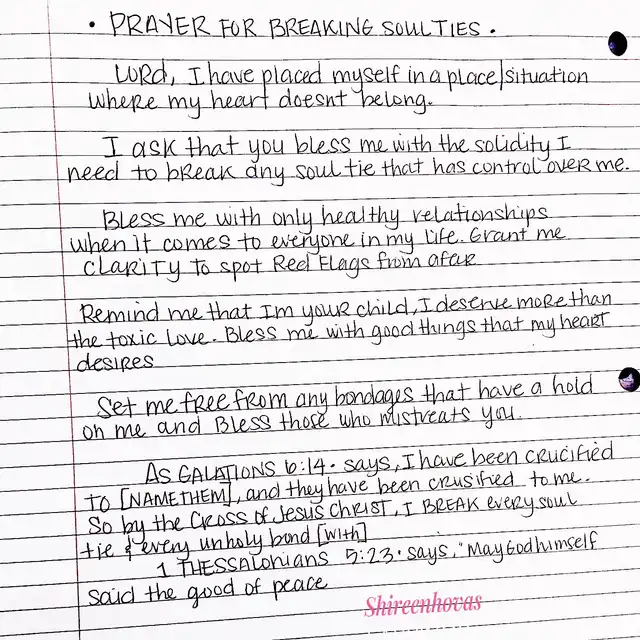 • PRAYER FOR BREAKING SOUL TIES •
LORD, I have placed myself in a place/situation
where my heart doesnt belong.
I ask that you bless me with the solidity I
need to break any soul tie that has control over me.
Bless me with only healthy relationships
when it comes to everyone in my life. Grant me
CLARITY To spot Red Flags from afar
Remind me that Im your child, I deserve more than
the toxic love. Bless me with good things that my heart
desires
Set me free from any bondages that have a hold
on me and Bless those who mistreats you.
AS GALATIONS 6:14. says, I have been crucified
TO [NAME THEM], and they have been crusified to me.
So by the Cross of Jesus Christ, I BREAK every soul
tie & every unholy bond [with]
1 THESSALONIANS 5:23. says, "May God himself
Said the good of peace
Shireenhovas